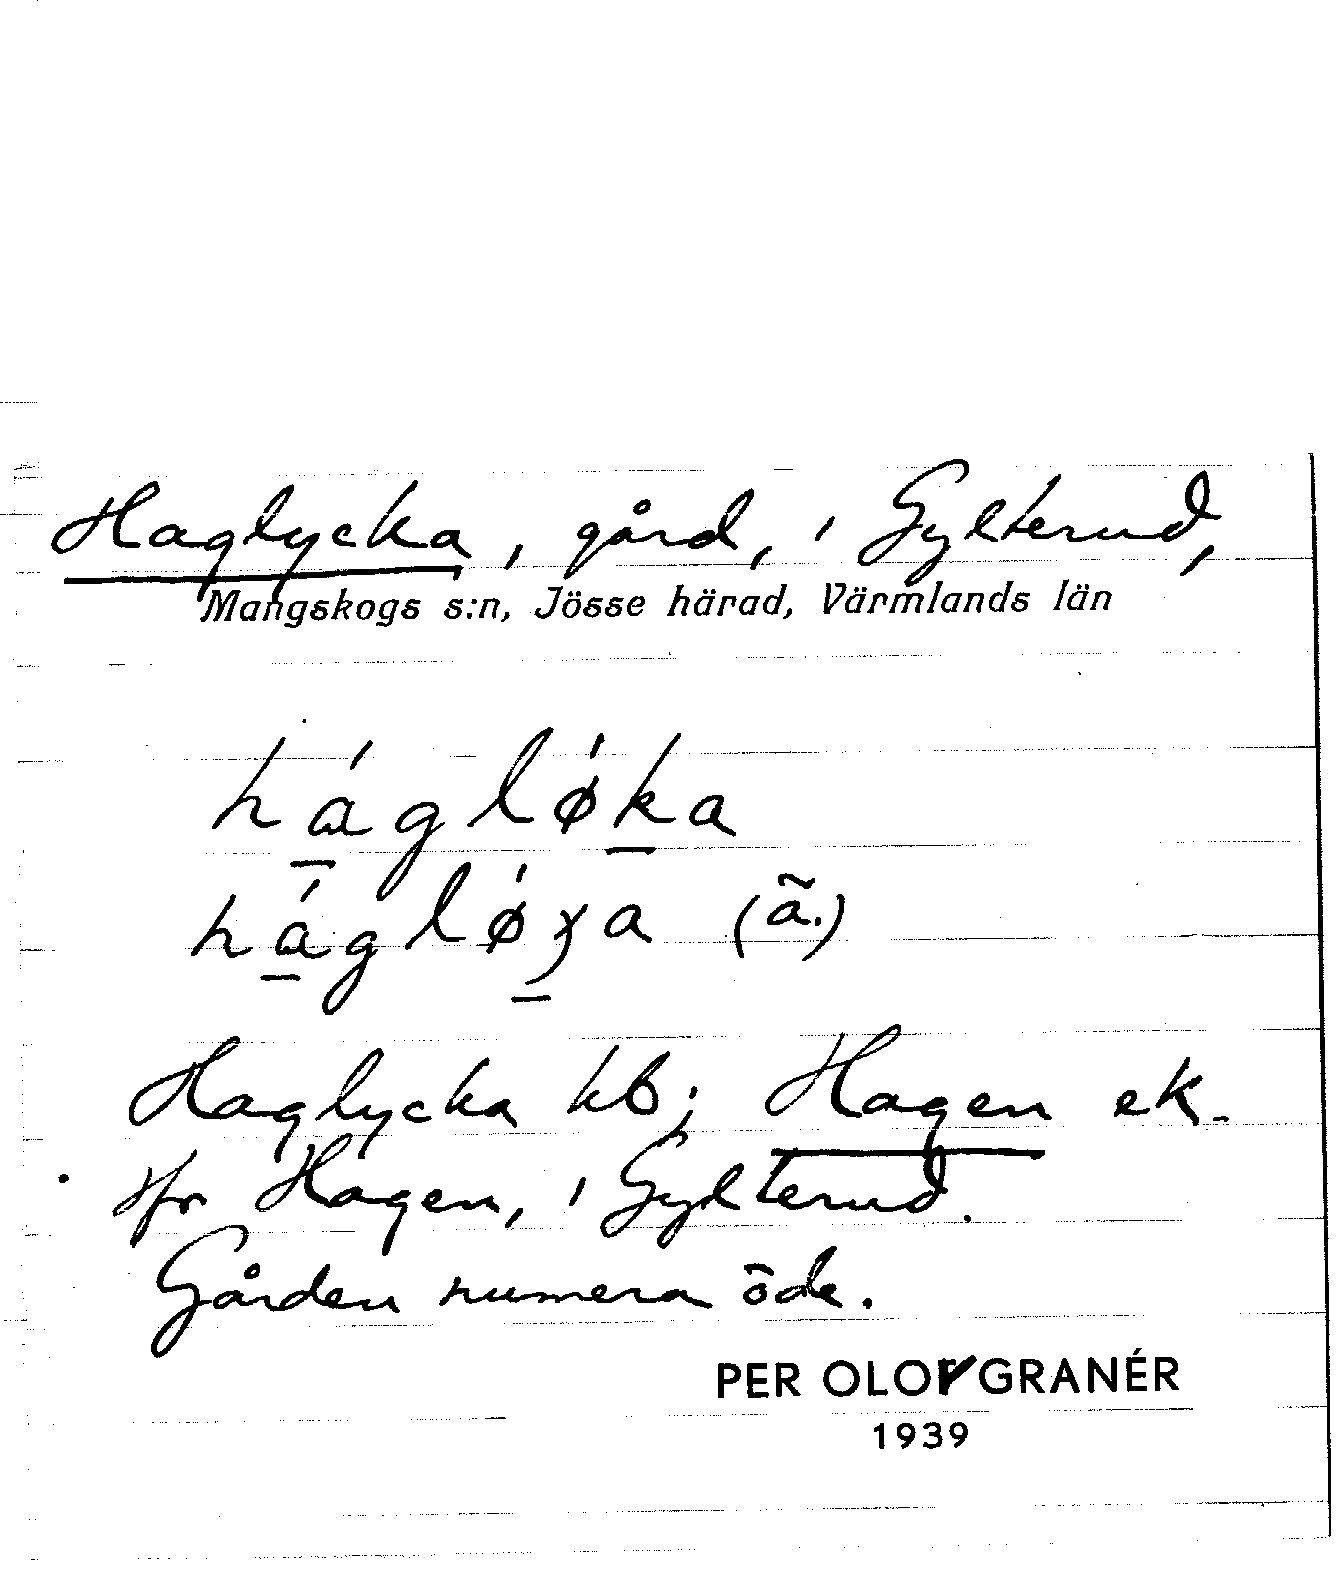 Haglycka, gård, i Gylterud,
Mangskogs s:n, Jösse härad, Värmlands län
háglǿka
(ã.)
Haglycka kb; Hagen ek.
Jfr Hagen, i Gylterud.
Gården numera öde.
PER OLOV GRANÉR
1939